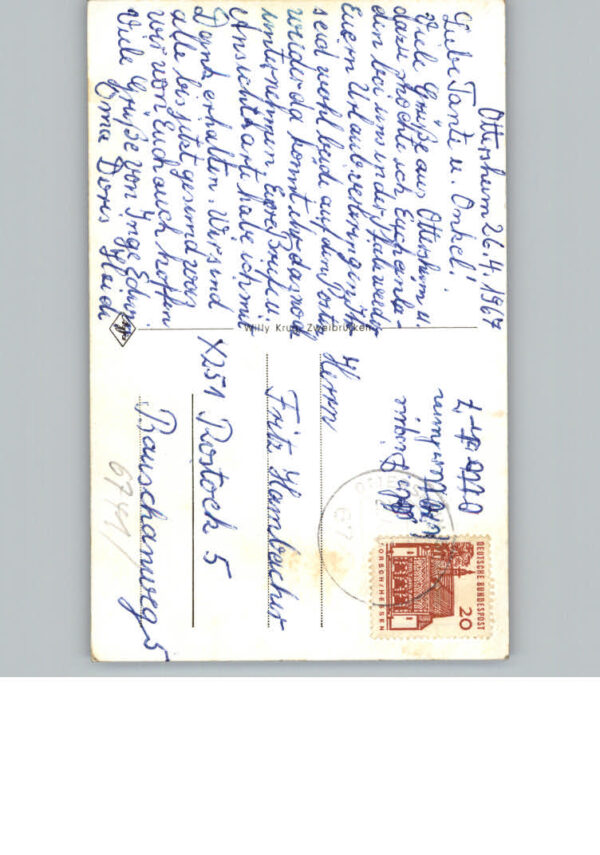 Ottersheim 26.4.1967
Liebe Tante u. Onkel!
Viele Grüße aus Ottersheim u.
dazu möchte ich Euch einla-
den bei uns in der Pfalz wieder
Euern Urlaub verbringen, Ihr
seid wohl beide auf den Posten
wieder da könnt ihr das noch
unternehmen Eure Brief u.
Ansichtkarte habe ich mit
Dank erhalten. Wir sind
alle bis jetzt gesund was
wir von Euch auch hoffen
Viele Grüße von Inge Edwin
Erna Doris Heidi
Willy Krug, Zweibrücken
Agfa
Herrn
Fritz Hambacher
X251 Rostock 5
Bauschanweg 5
6741
OTTERSHEIM
67
DEUTSCHE BUNDESPOST
20
LORSCH/HESSEN